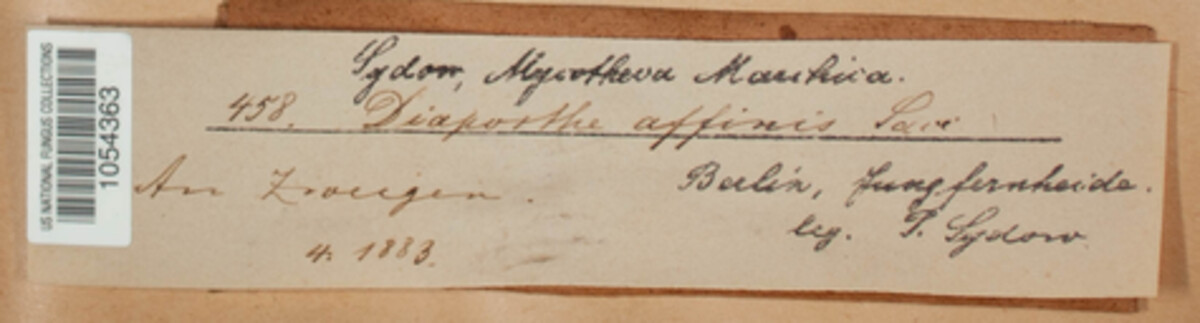 US NATIONAL FUNGUS COLLECTIONS
1054363
Sydow, Mycotheca Marchica.
458. Diaporthe affinis Sacc
An Zweigen.
4. 1883.
Berlin, Jungfernheide.
leg. P. Sydow